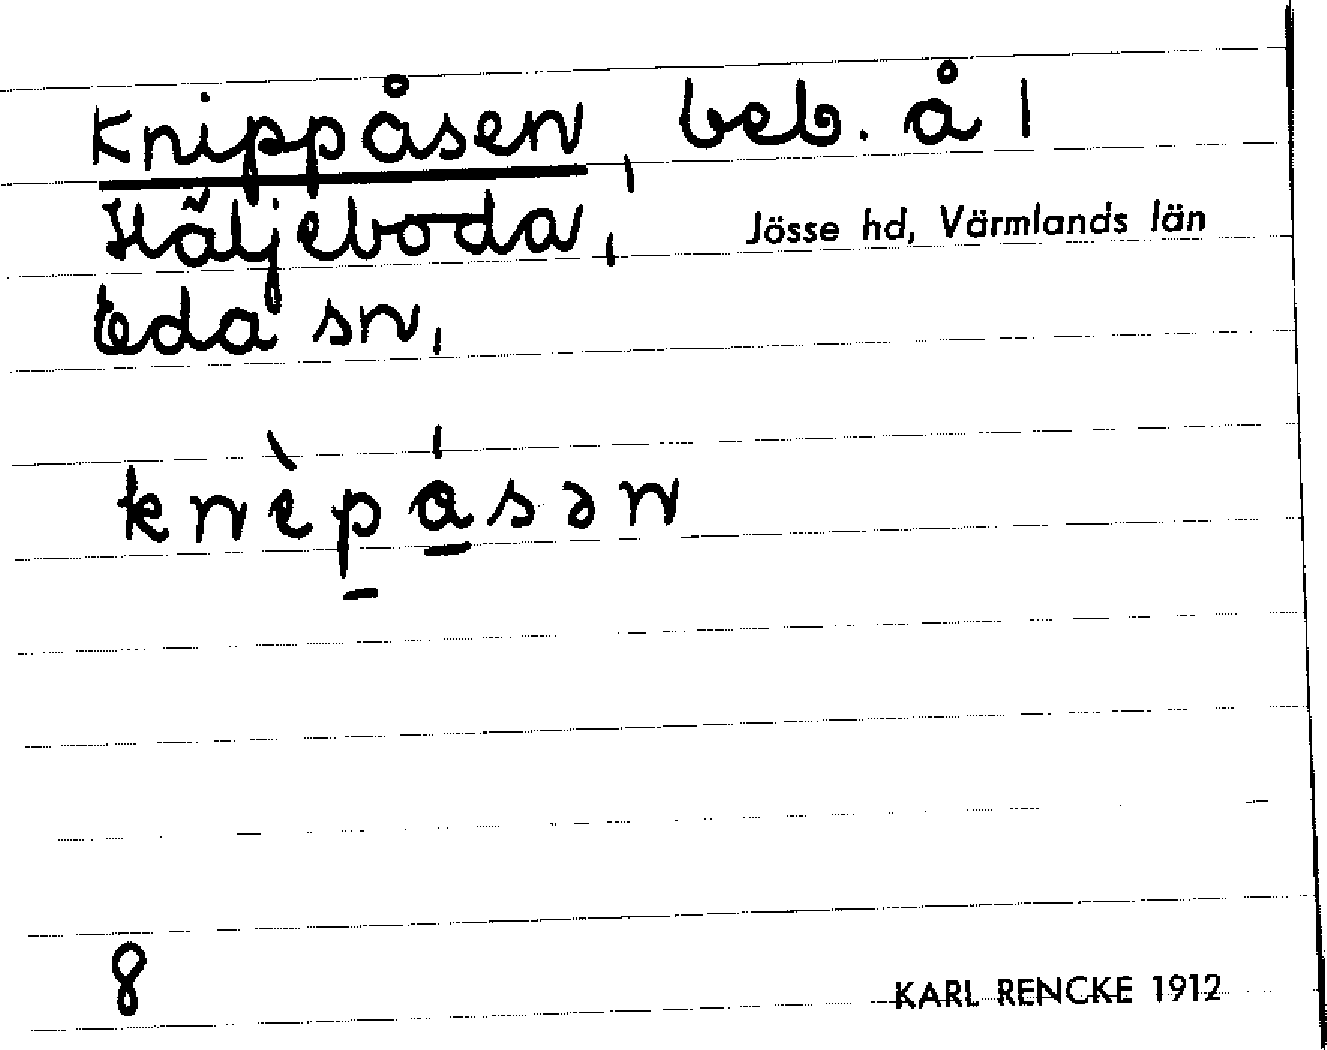 Knippåsen, beb. å 1
Häljeboda, Jösse hd, Värmlands län
Eda sn,
knèpásən
8
KARL RENCKE 1912